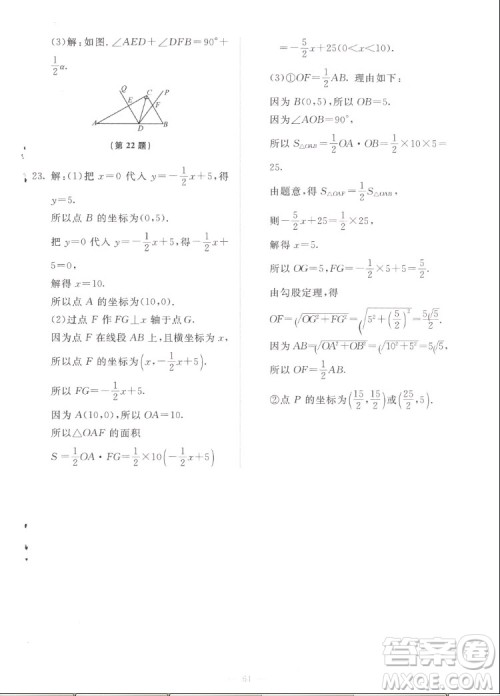 (3)解:如图.∠AED+∠DFB=90°+
1/2 α.
Q C P
E F
A D B
(第 22 题)
23. 解:(1)把 x=0 代入 y=-1/2 x+5,得
y=5.
所以点 B 的坐标为(0,5).
把 y=0 代入 y=-1/2 x+5,得-1/2 x
+5=0,
解得 x=10.
所以点 A 的坐标为(10,0).
(2)过点 F 作 FG⊥x 轴于点 G.
因为点 F 在线段 AB 上,且横坐标为 x,
所以点 F 的坐标为(x,-1/2 x+5).
所以 FG=-1/2 x+5.
因为 A(10,0),所以 OA=10.
所以△OAF 的面积
S=1/2 OA·FG=1/2×10(-1/2 x+5)
=-5/2 x+25(0<x<10).
(3)①OF=1/2 AB. 理由如下:
因为 B(0,5),所以 OB=5.
因为∠AOB=90°,
所以 S△OAB=1/2 OA·OB=1/2×10×5=
25.
由题意,得 S△OAF=1/2 S△OAB,
则-5/2 x+25=1/2×25.
解得 x=5.
所以 OG=5,FG=-1/2×5+5=5/2.
由勾股定理,得
OF=√(OG²+FG²)=√(5²+(5/2)²)=5√5/2.
因为 AB=√(OA²+OB²)=√(10²+5²)=5√5,
所以 OF=1/2 AB.
②点 P 的坐标为(15/2,15/2)或(15/2,5).
61
答案圈
MXQE.COM